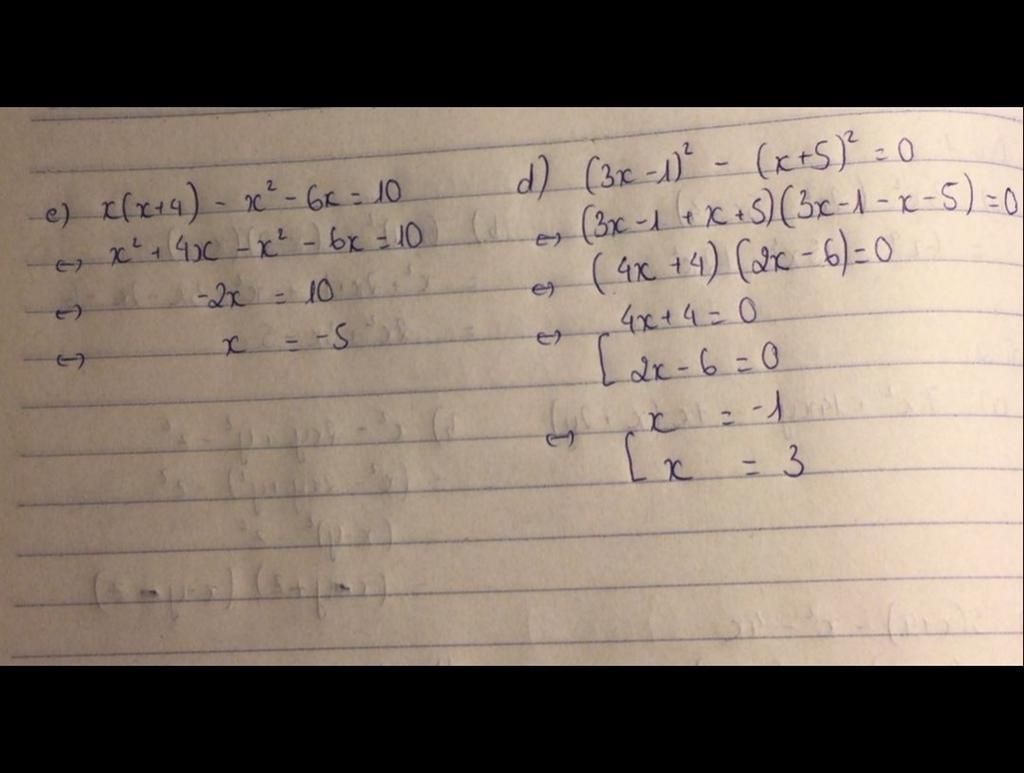 e) x(x+4) - x² - 6x = 10
<-> x² + 4x - x² - 6x = 10
<-> -2x = 10
<-> x = -5
d) (3x-1)² - (x+5)² = 0
<-> (3x-1 + x+5)(3x-1-x-5) = 0
<-> (4x+4)(2x-6)=0
<-> [ 4x+4 = 0
2x-6 = 0
<-> [ x = -1
x = 3